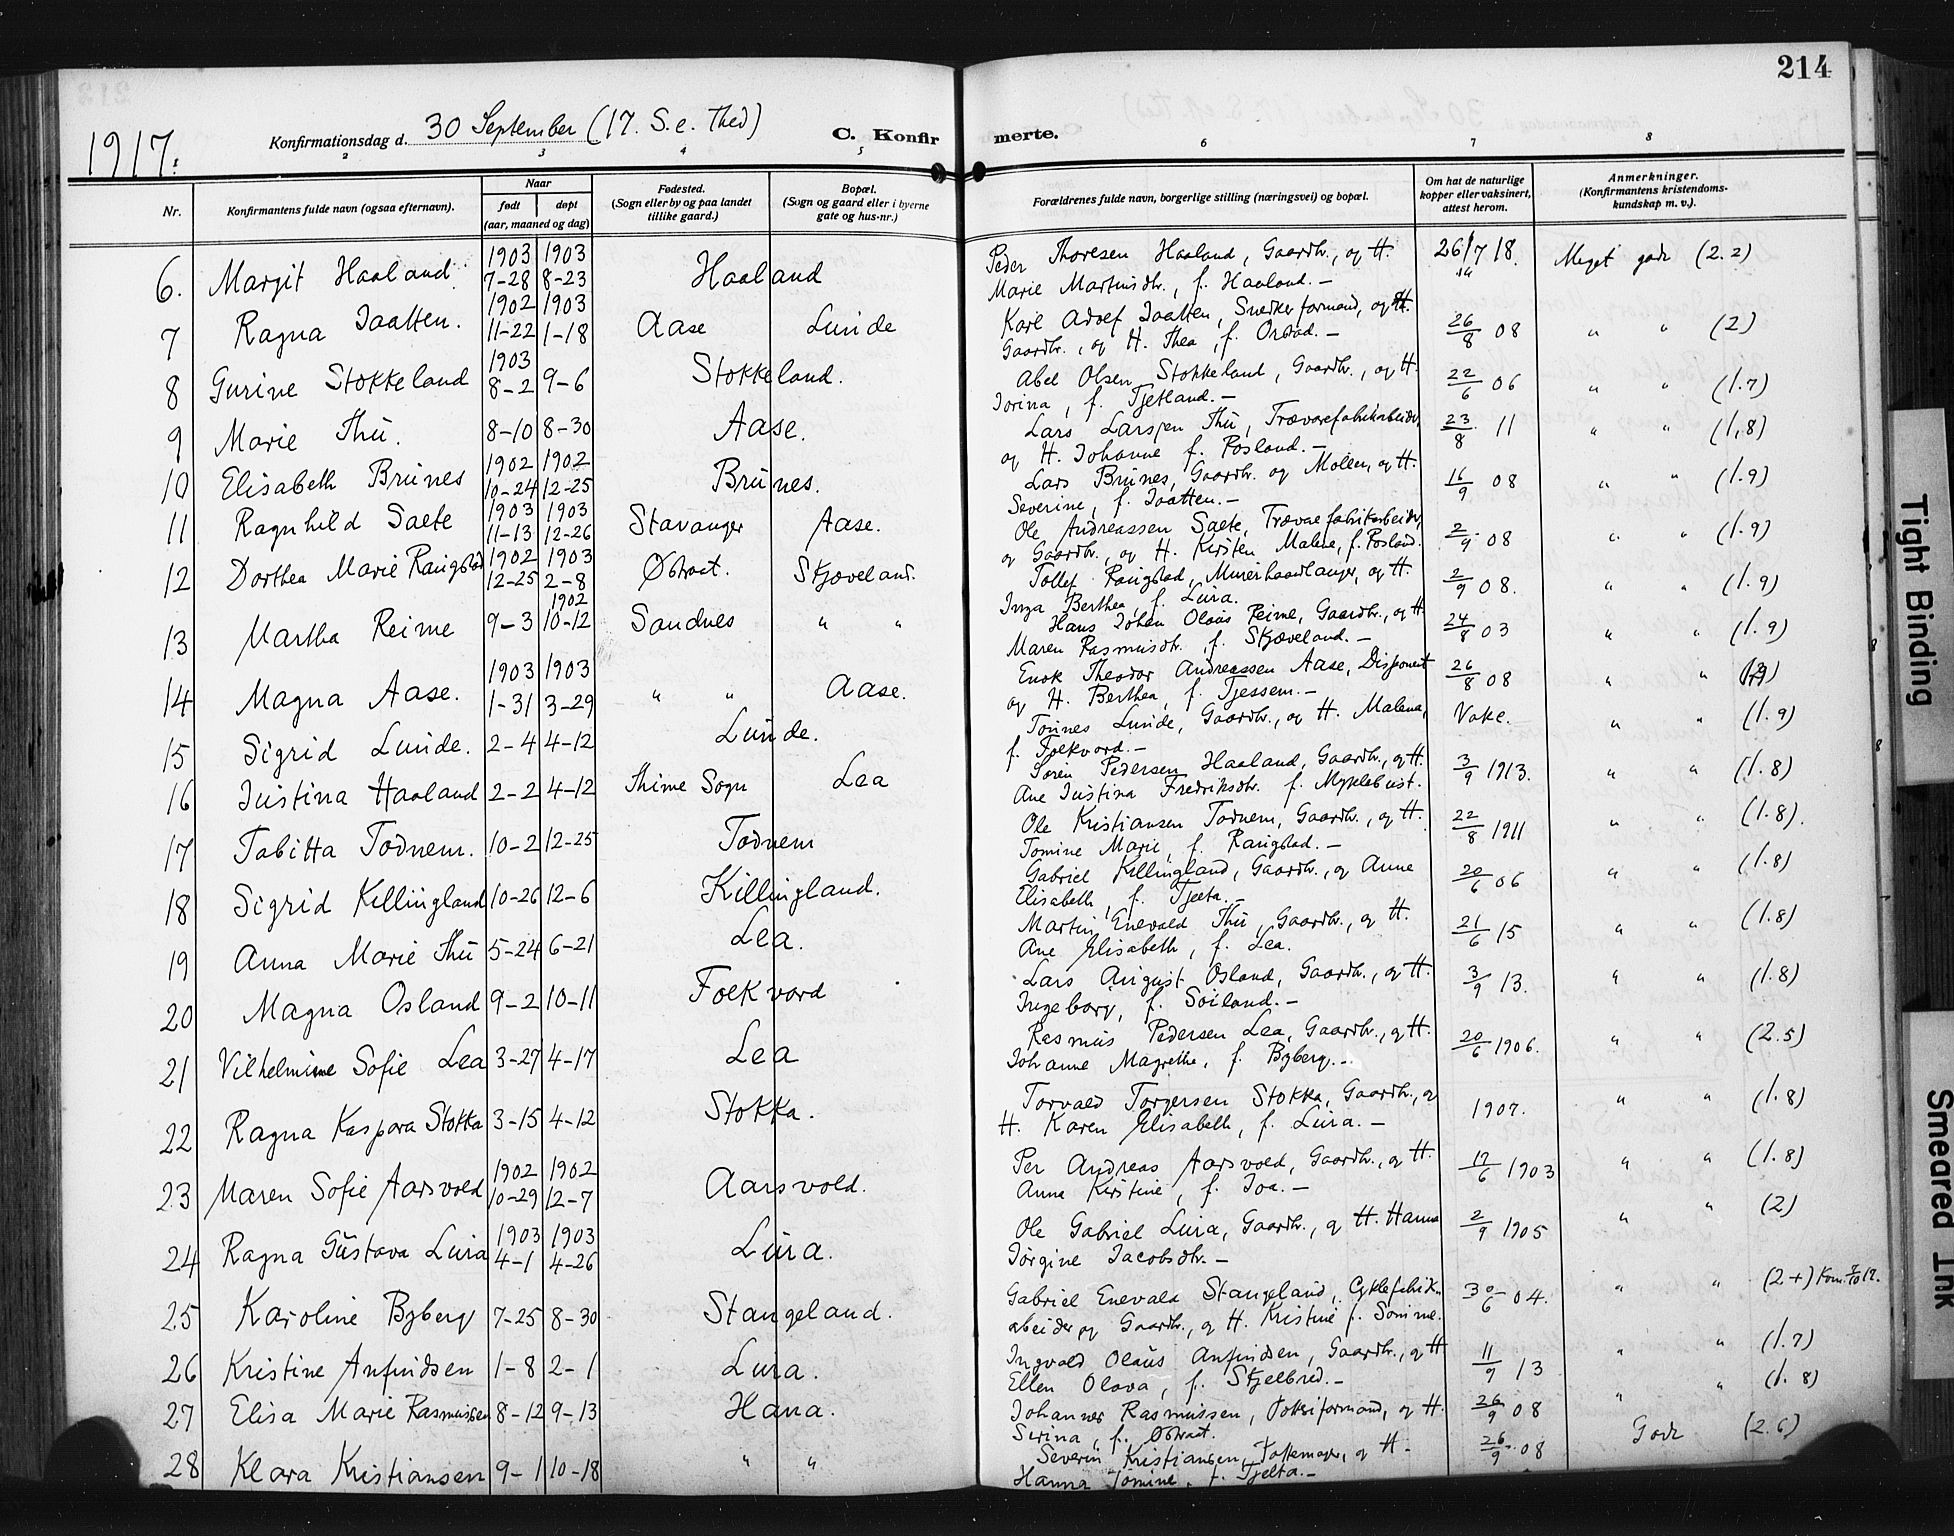 214
1917.
Konfirmationsdag d. 30 September (17. S. e. Thed)
C. Konfirmerte.
2 3 4 5 6 7 8
Nr.
Konfirmantens fulde navn (ogsaa efternavn).
Naar
født
døpt
(aar, maaned og dag)
Fødested.
(Sogn eller by og paa landet
tillike gaard.)
Bopæl.
(Sogn og gaard eller i byerne
gate og hus-nr.)
Forældrenes fulde navn, borgerlige stilling (næringsvei) og bopæl.
Om hat de naturlige
kopper eller vaksinert,
attest herom.
Anmerkninger.
(Konfirmantens kristendoms-
kundskap m. v.).
6. Margit Haaland 1903 7-28 1903 8-23 Haaland Peder Thoresen Haaland, Gaardbr., og H.
Marie Martinsdtr., f. Haaland.- 26/7 18. Meget godt (2.2)
7 Ragna Jaatten. 1902 11-22 1903 1-18 Aase Lunde Karl Adolf Jaatten, Snedkerformand, og H.
Gaardbr., og H. Thea, f. Orstad.- 26/8 08 " " (2)
8 Gurine Stokkeland 1903 8-2 9-6 Stokkeland. Abel Olsen Stokkeland, Gaardbr., og H.
Jorina, f. Tjetland.- 22/6 06 " " (1.7)
9 Marie Thu. 8-10 8-30 Aase. Lars Larsen Thu, Trævarefabrikarbeider,
og H. Johanne f. Fosland.- 23/8 11 " " (1,8)
10 Elisabeth Brunes 1902 10-24 1902 12-25 Brunes. Lars Brunes, Gaardbr. og Møller, og H.
Severine, f. Jaatten.- 16/9 08 " " (1.9)
11 Ragnhild Saele 1903 11-13 1903 12-26 Stavanger Aase. Ole Andreassen Saele, Trævarefabrikarbeider,
og Gaardbr., og H. Kirsten Malene, f. Fosland. 2/9 08 " " (1.9)
12 Dorthea Marie Raugstad 1902 12-25 1903 2-8 Østraat. Skjæveland. Tollef Raugstad, Murerhaandlanger, og H.
Inga Berthea, f. Lura. 2/9 08. " " (1.9)
13 Martha Reime 9-3 1902 10-12 Sandnes " " Hans Johan Olaus Reime, Gaardbr., og H.
Maren Rasmusdtr. f. Skjæveland.- 24/8 03 " " (1.9)
14 Magna Aase. 1903 1-31 1903 3-29 " " Aase. Enok Theodor Andreassen Aase, Disponent
og H. Berthea, f. Tjessem.- 26/8 08 " "
15 Sigrid Lunde. 2-4 4-12 Lunde. Tønnes Lunde, Gaardbr., og H. Malena,
f. Folkvord.- Vakc. " " (1.9)
16 Justina Haaland 2-2 4-12 Thime Sogn Lea Søren Pedersen Haaland, Gaardbr., og H.
Ane Justina Fredriksdtr. f. Myklebust. 3/9 1913. " " (1.8)
17 Tabitta Todnem. 10-2 12-25 Todnem Ole Kristiansen Todnem, Gaardbr., og H.
Tomine Marie, f. Raugstad.- 22/8 1911 " " (1.8).
18 Sigrid Killingland 10-26 12-6 Killingland. Gabriel Killingland, Gaardbr., og Anne
Elisabeth, f. Tjelta.- 20/6 06 " " (1.8)
19 Anna Marie Thu 5-24 6-21 Lea. Martin Enevald Thu, Gaardbr., og H.
Ane Elisabeth, f. Lea. 21/6 15 " " (1.8)
20 Magna Osland 9-2 10-11 Folkvord Lars August Osland, Gaardbr., og H.
Ingeborg, f. Soiland.- 3/9 13. " " (1.8)
21 Vilhelmine Sofie Lea 3-27 4-17 Lea Rasmus Pedersen Lea, Gaardbr., og H.
Johanne Magrethe, f. Byberg.- 20/6 1906. " " (2.5)
22 Ragna Kaspara Stokka 3-15 4-12 Stokka. Torvald Torgersen Stokka, Gaardbr., og
H. Karen Elisabeth, f. Lura.- 1907. " " (1.8)
23 Maren Sofie Aarsvold 1902 10-29 1902 12-7 Aarsvold. Per Andreas Aarsvold, Gaardbr., og H.
Anna Kirstine, f. Joa.- 17/6 1903 " " (1.8)
24 Ragna Gustava Lura 1903 4-1 1903 4-26 Lura. Ole Gabriel Lura, Gaardbr., og H. Hanna
Jørgine Jacobsdtr.- 2/9 1905 " " (2)
25 Karoline Byberg 7-25 8-30 Stangeland. Gabriel Enevald Stangeland, Cyklefabrik-
arbeider og Gaardbr., og H. Kristine f. Sømme. 30/6 04. " " (2+)
26 Kristine Anfindsen 1-8 2-1 Lura. Ingvald Olaus Anfindsen, Gaardbr., og H
Ellen Olava, f. Skjelbred.- 11/9 13 " " (1.7)
27 Elisa Marie Rasmussen 8-12 9-13 Hana. Johannes Rasmussen, formand, og H.
Serina, f. Østraat. 26/9 08 " " (1.8)
28 Klara Kristiansen 9-1 10-18 " " Severin Kristiansen, Pottemager, og H.
Hanna Tomine, f. Tjelta.- 26/9 08 Godt (2.6)
Tight Binding
Smeared Ink